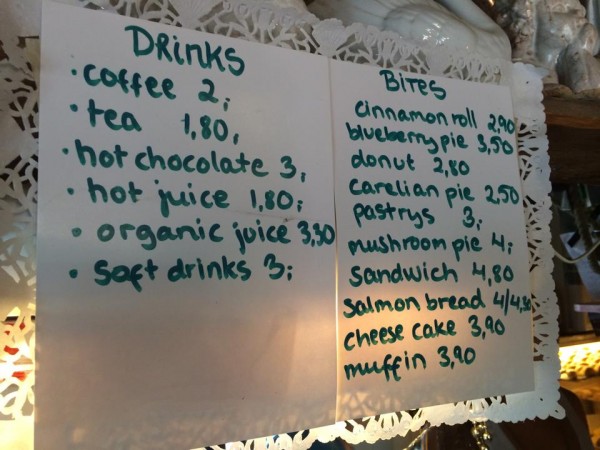 DRINKS
• coffee 2,
• tea 1,80,
• hot chocolate 3,
• hot juice 1,80,
• organic juice 3,30
• soft drinks 3,
BITES
cinnamon roll 2,90
blueberry pie 3,50
donut 2,80
carelian pie 2,50
pastrys 3,
mushroom pie 4,
sandwich 4,80
salmon bread 4/4,30
cheese cake 3,90
muffin 3,90